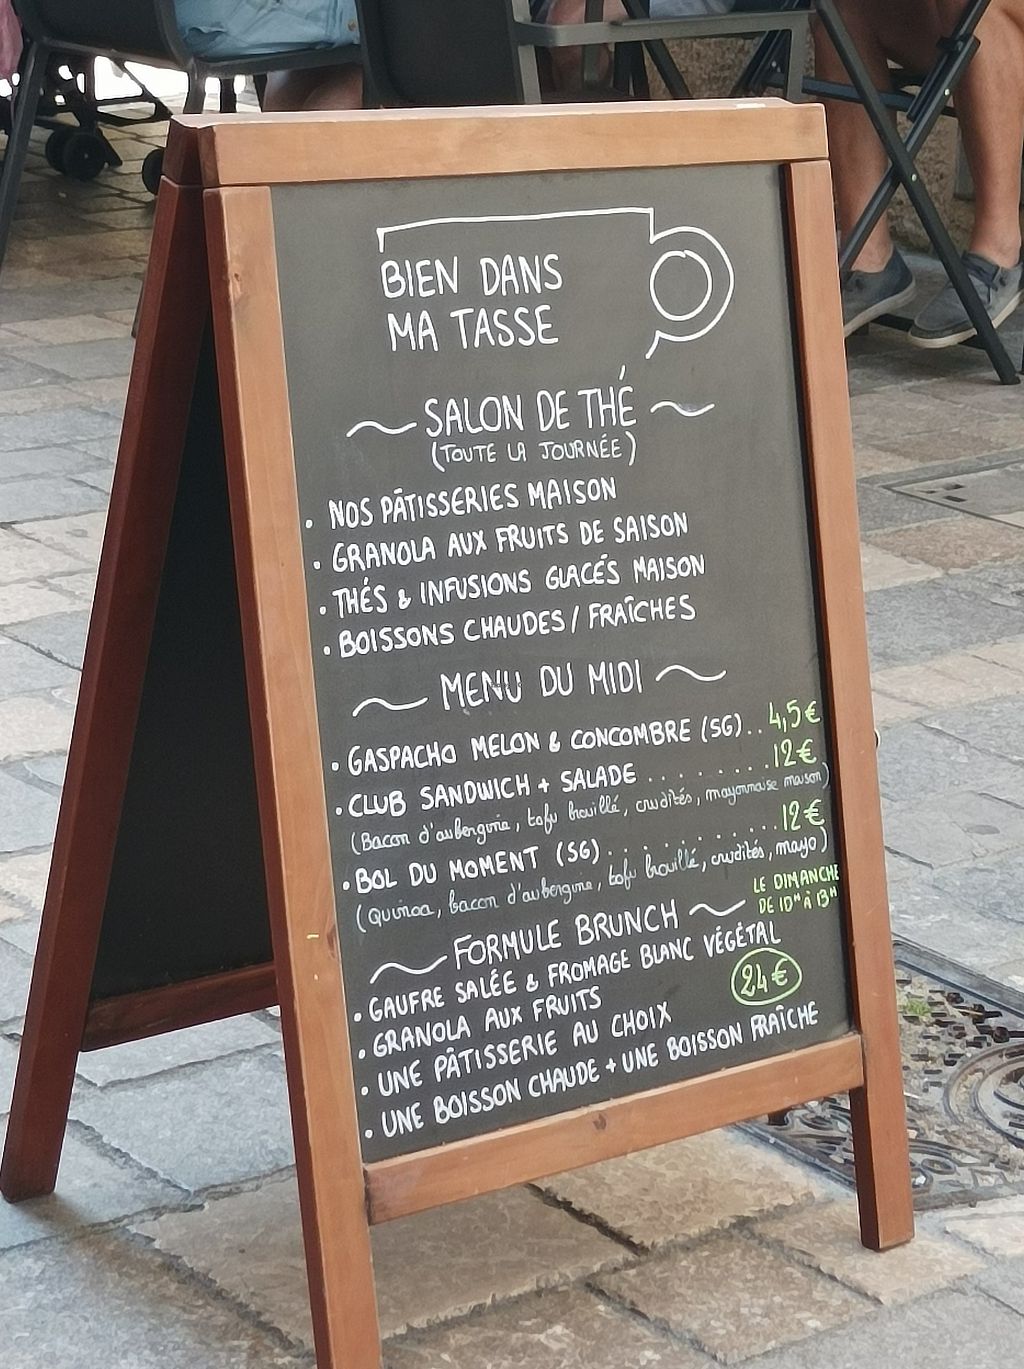 BIEN DANS
MA TASSE
SALON DE THÉ
(TOUTE LA JOURNÉE)
• NOS PÂTISSERIES MAISON
• GRANOLA AUX FRUITS DE SAISON
• THÉS & INFUSIONS GLACÉS MAISON
• BOISSONS CHAUDES / FRAÎCHES
MENU DU MIDI
• GASPACHO MELON & CONCOMBRE (SG).. 4,5€
• CLUB SANDWICH + SALADE ......... 12€
(Bacon d'aubergine, tofu brouillé, crudités, mayonnaise maison)
• BOL DU MOMENT (SG) ............ 12€
(Quinoa, bacon d'aubergine, tofu brouillé, crudités, mayo)
FORMULE BRUNCH
LE DIMANCHE
DE 10H À 13H
• GAUFRE SALÉE & FROMAGE BLANC VÉGÉTAL
• GRANOLA AUX FRUITS
24€
• UNE PÂTISSERIE AU CHOIX
• UNE BOISSON CHAUDE + UNE BOISSON FRAÎCHE